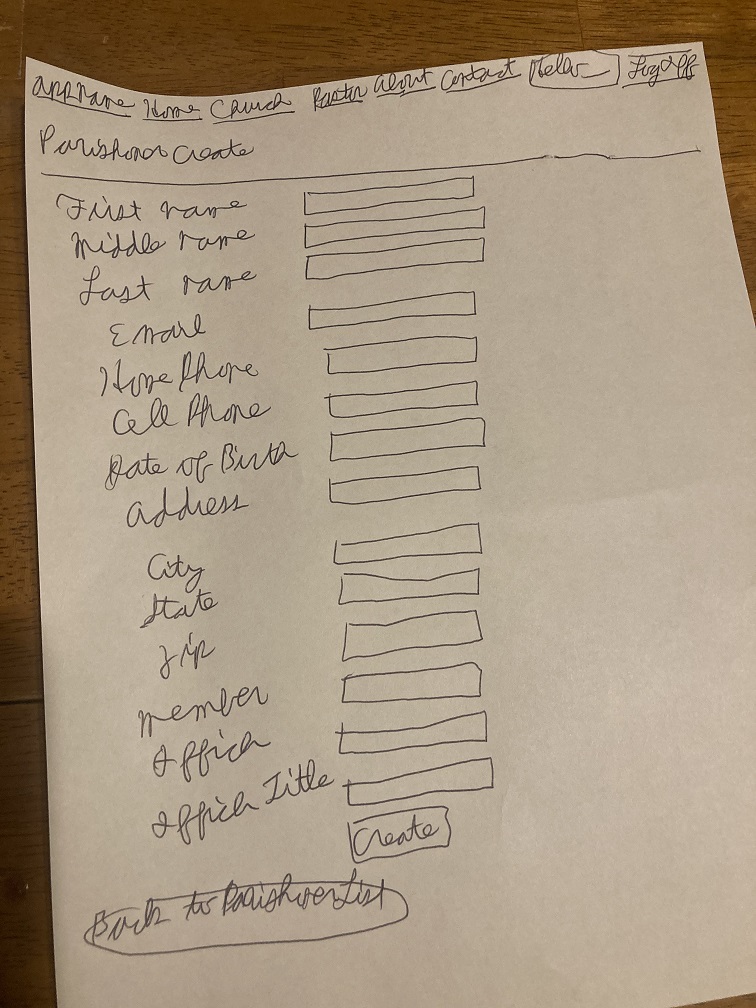 appname Home Church Pastor About Contact Hello Log off
Parishoner Create
First name
Middle name
Last name
Email
Home Phone
Cell Phone
Date of Birth
Address
City
State
Zip
member
Create
Back to Parishoner List